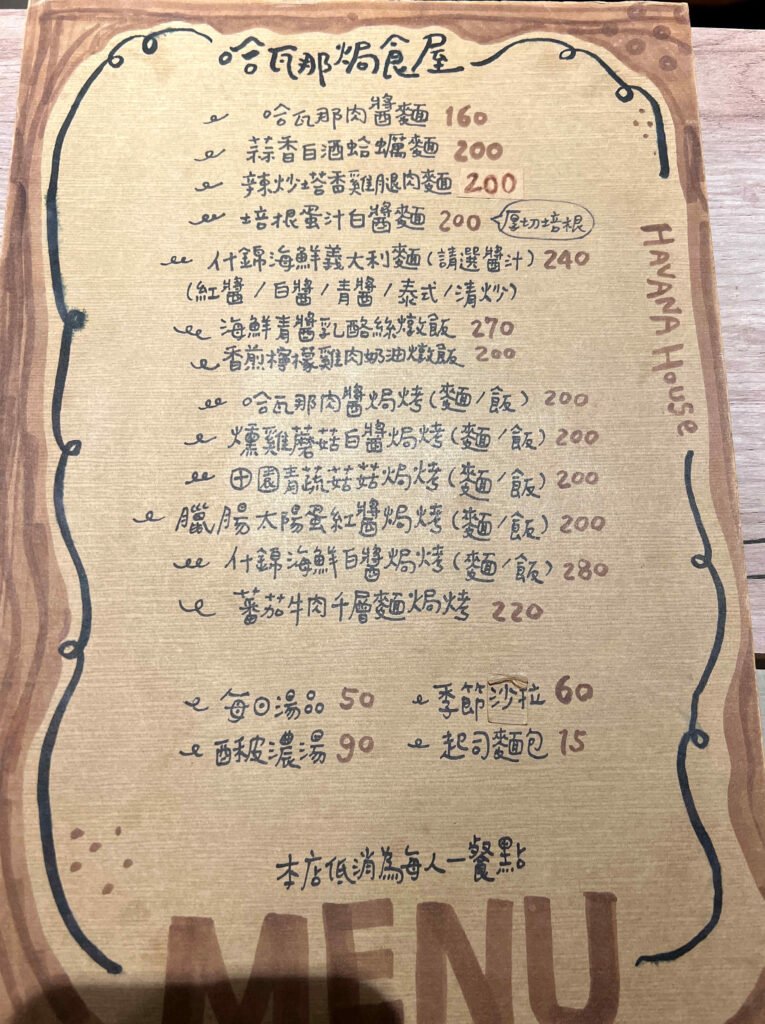 哈瓦那焗食屋
哈瓦那肉醬麵 160
蒜香白酒蛤蠣麵 200
辣炒塔香雞腿肉麵 200
培根蛋汁白醬麵 200 厚切培根
什錦海鮮義大利麵(請選醬汁) 240
(紅醬/白醬/青醬/泰式/清炒)
海鮮青醬乳酪絲燉飯 270
香煎檸檬雞肉奶油燉飯 200
哈瓦那肉醬焗烤(麵/飯) 200
燻雞蘑菇白醬焗烤(麵/飯) 200
田園青蔬菇菇焗烤(麵/飯) 200
臘腸太陽蛋紅醬焗烤(麵/飯) 200
什錦海鮮白醬焗烤(麵/飯) 280
蕃茄牛肉千層麵焗烤 220
每日湯品 50 季節沙拉 60
酥皮濃湯 90 起司麵包 15
本店低消為每人一餐點
HAVANA House
MENU